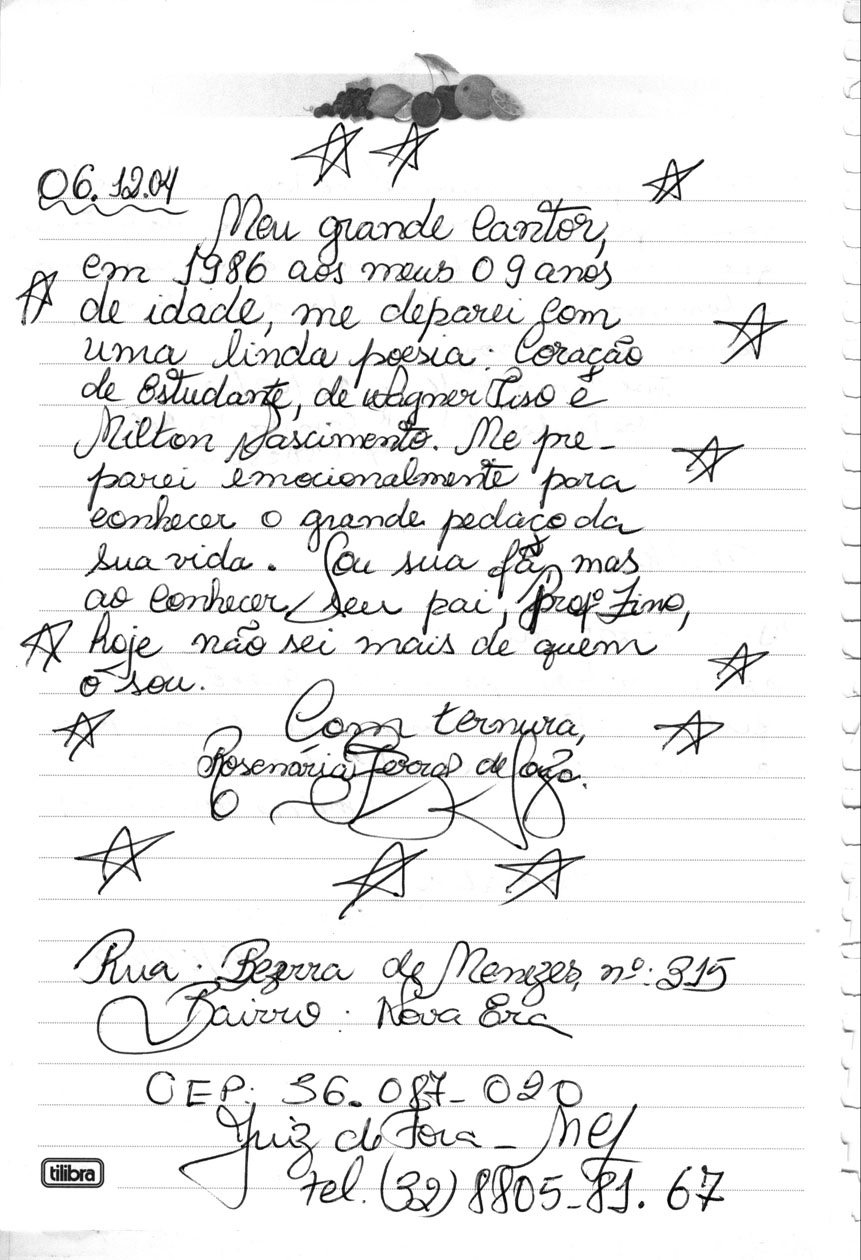 06.12.04
Meu grande Cantor,
em 1986 aos meus 09 anos
de idade, me deparei com
uma linda poesia: Coração
de Estudante, de Wagner Tiso e
Milton Nascimento. Me pre-
parei emocionalmente para
conhecer o grande pedaço da
sua vida. Sou sua fã, mas
ao conhecer seu pai, Profº Zino,
hoje não sei mais de quem
o sou.
Com ternura,
Rosemária de
Rua: Bezerra de Menezes, nº: 315
Bairro: Nova Era
CEP: 36.087-020
Juiz de Fora - MG
tel. (32) 8805-81.67
tilibra